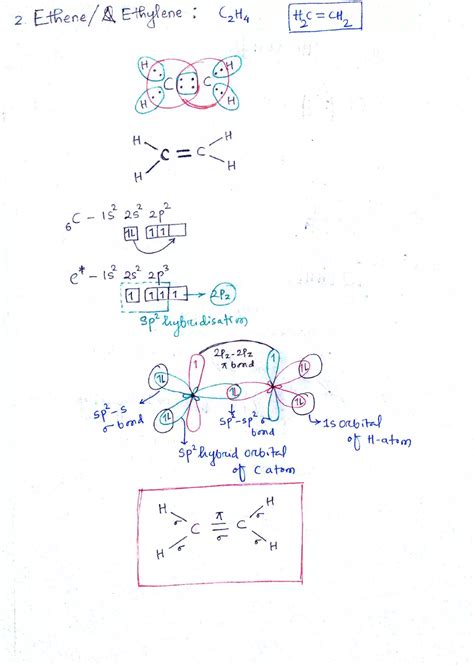 2. Ethene/ Ethylene : C₂H₄ H₂C=CH₂
H H
C C
H H
H H
C = C
H H
₆C – 1s² 2s² 2p²
1L 1 1
C* – 1s² 2s² 2p³
1 1 1 1 → 2p₂
Sp² hybridisation
2p₂-2p₂
π bond
1 1
1L 1L 1L 1L 1L
sp²-s
σ bond
sp²-sp² σ
bond
1s orbital
of H-atom
sp² hybrid orbital
of C atom
H H
σ π σ
C = C
σ σ σ
H H